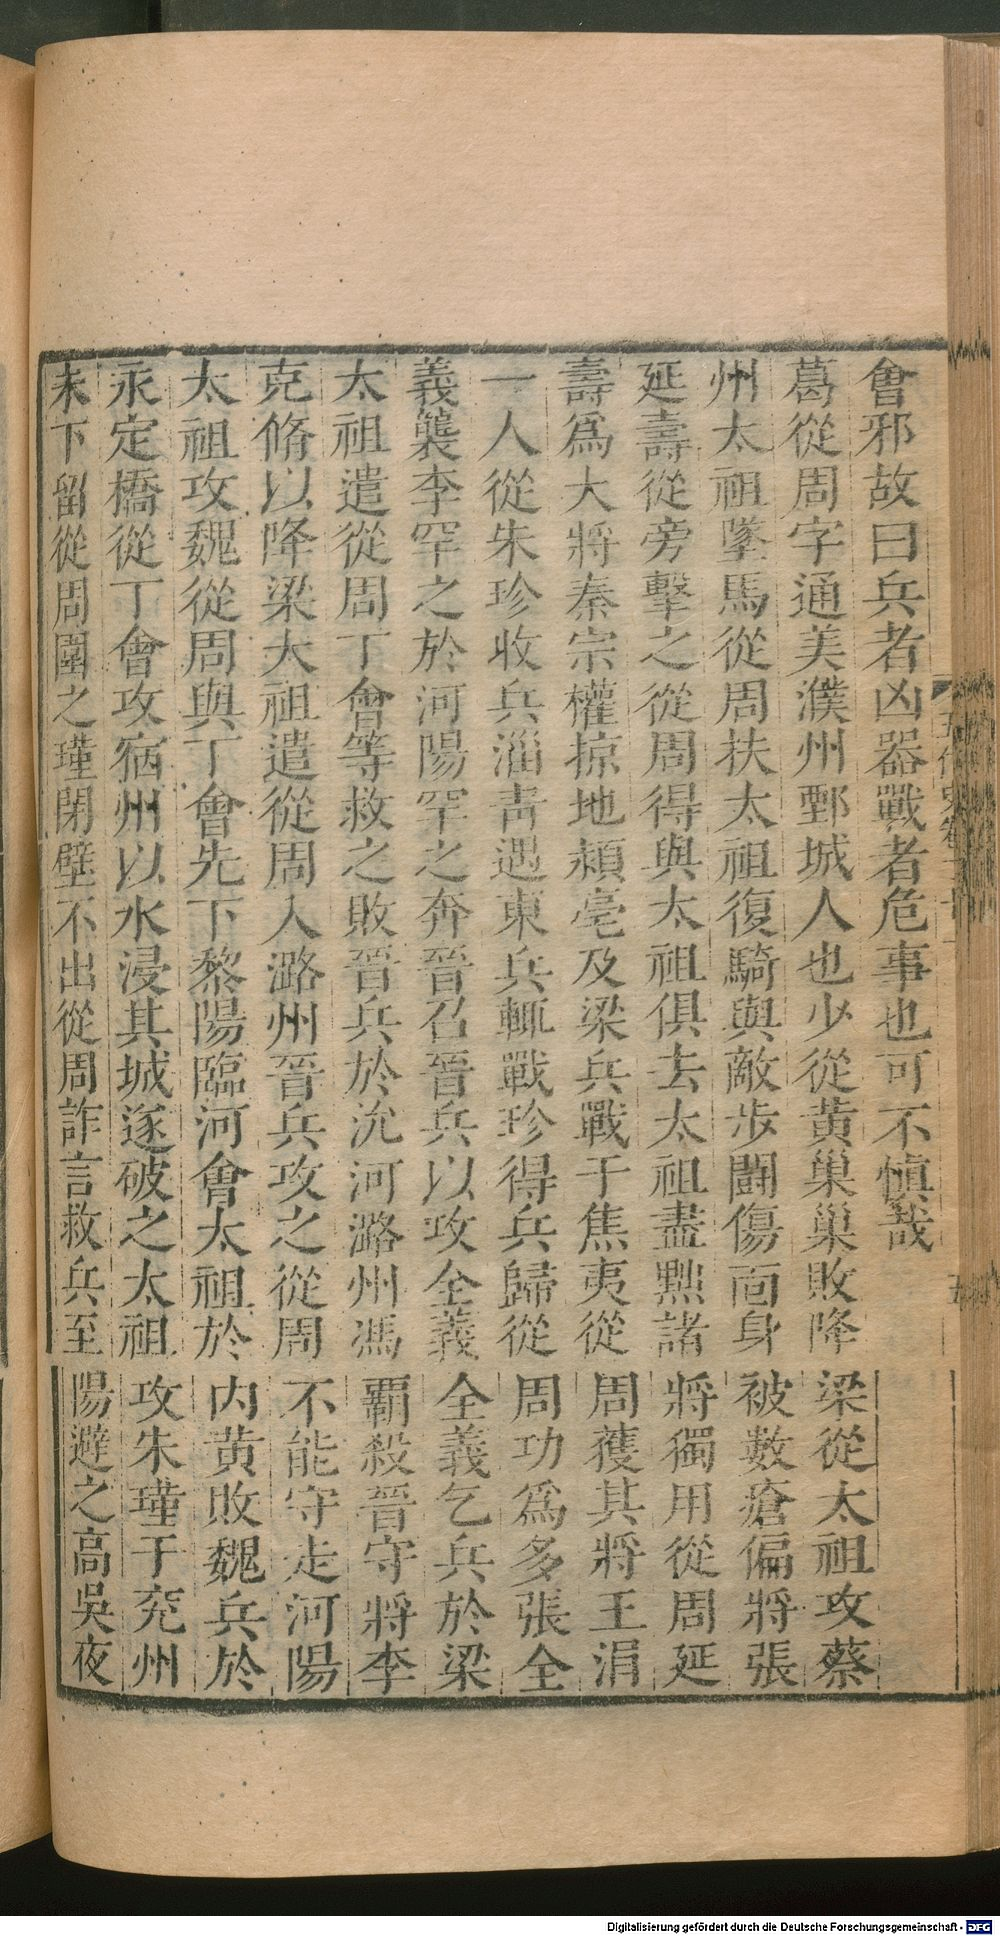 會邪故曰兵者凶器戰者危事也可不愼哉
葛從周字通美濮州鄄城人也少從黃巢巢敗降梁從太祖攻蔡
州太祖墜馬從周扶太祖復騎與敵步鬭傷面身被數瘡偏將張
延壽從旁擊之從周得與太祖俱去太祖盡黜諸將獨用從周延
壽爲大將秦宗權掠地潁亳及梁兵戰于焦夷從周獲其將王涓
一人從朱珍收兵淄靑遇東兵輒戰珍得兵歸從周功爲多張全
義襲李罕之於河陽罕之奔晉召晉兵以攻全義全義乞兵於梁
太祖遣從周丁會等救之敗晉兵於沇河潞州馮覇殺晉守將李
克脩以降梁太祖遣從周入潞州晉兵攻之從周不能守走河陽
太祖攻魏從周與丁會先下黎陽臨河會太祖於内黃敗魏兵於
永定橋從丁會攻宿州以水浸其城遂破之太祖攻朱瑾于兖州
未下留從周圍之瑾閉壁不出從周詐言救兵至陽避之高吳夜
五代史卷二十一
五
Digitalisierung gefördert durch die Deutsche Forschungsgemeinschaft - DFG